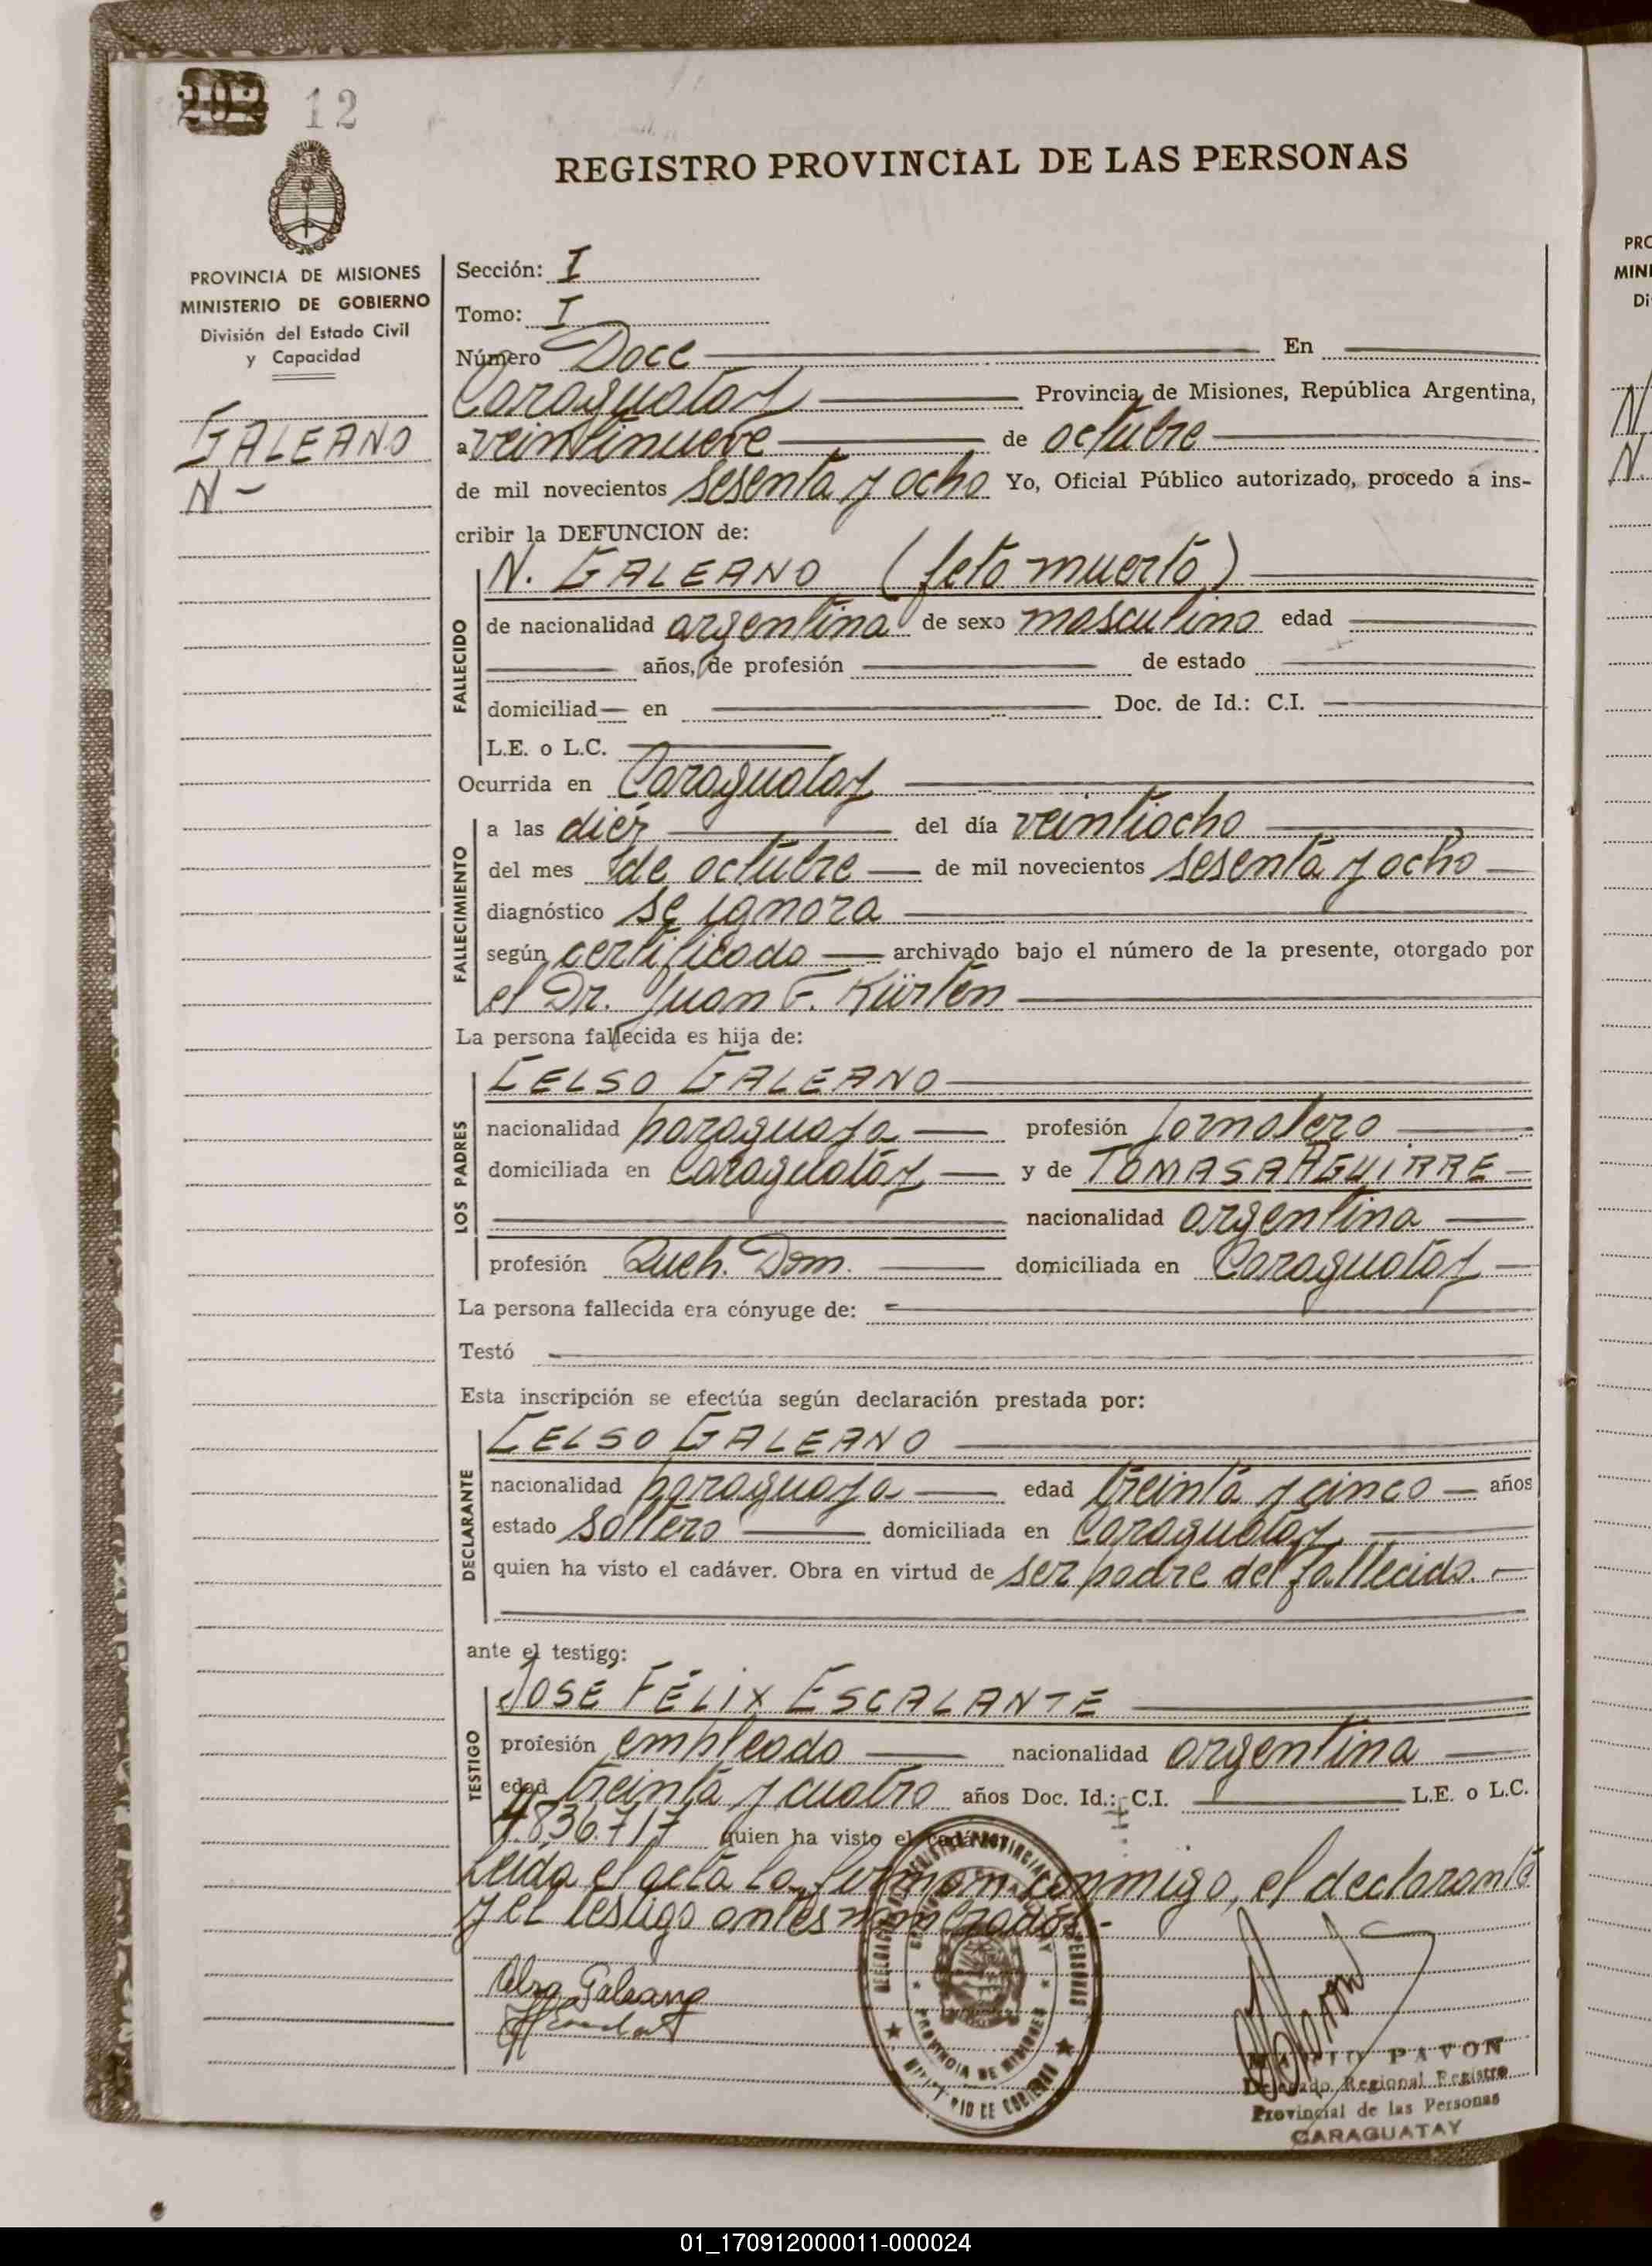 12
REGISTRO PROVINCIAL DE LAS PERSONAS
PROVINCIA DE MISIONES
MINISTERIO DE GOBIERNO
División del Estado Civil
y Capacidad
GALEANO
N -
Sección: I
Tomo: I
Número Doce En
Caraguatay Provincia de Misiones, República Argentina,
a veintinueve de octubre
de mil novecientos sesenta y ocho Yo, Oficial Público autorizado, procedo a ins-
cribir la DEFUNCION de:
N. GALEANO (feto muerto)
FALLECIDO
de nacionalidad argentina de sexo masculino edad
años, de profesión de estado
domiciliad en Doc. de Id.: C.I.
L.E. o L.C.
Ocurrida en Caraguatay
FALLECIMIENTO
a las diér del día veintiocho
del mes de octubre de mil novecientos sesenta y ocho
diagnóstico se ignora
según certificado archivado bajo el número de la presente, otorgado por
el Dr. Juan F. Kürten
La persona fallecida es hija de:
LOS PADRES
CELSO GALEANO
nacionalidad paraguaya profesión Jornalero
domiciliada en Caraguatáy y de TOMASA AGUIRRE
nacionalidad argentina
profesión Queh. Dom. domiciliada en Caraguatáy
La persona fallecida era cónyuge de:
Testó
Esta inscripción se efectúa según declaración prestada por:
DECLARANTE
CELSO GALEANO
nacionalidad paraguaya edad treinta y cinco años
estado soltero domiciliada en Caraguatay
quien ha visto el cadáver. Obra en virtud de ser padre del fallecido.
ante el testigo:
TESTIGO
JOSE FÉLIX ESCALANTE
profesión empleado nacionalidad argentina
edad treinta y cuatro años Doc. Id.: C.I. L.E. o L.C.
4.836.717 quien ha visto el cadáver
Leída el acta la firman conmigo, el declarante
y el testigo antes nombrados.-
Celso Galeano
PROVINCIA DE MISIONES
MARIO PAVON
Delegado Regional Registro
Provincial de las Personas
CARAGUATAY
PRO
MINI
Di
N
N
01_170912000011-000024